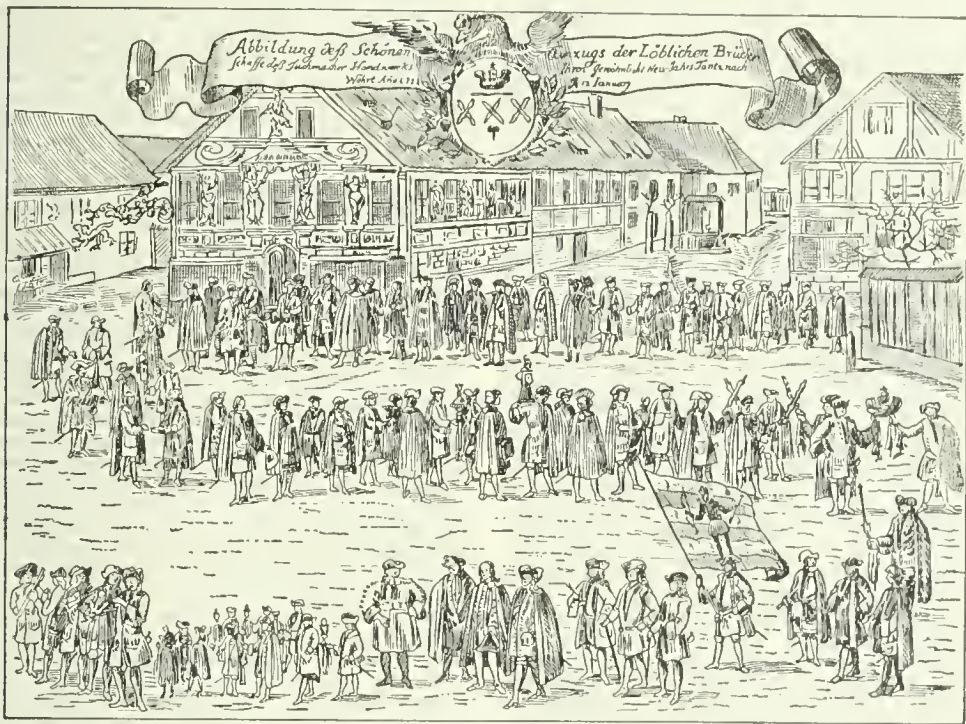 Abbildung deß Schönen
schafft deß Tuchmacher Handwerks
Währt
Umzugs der Löblichen Brüder
Ihrol Gewöhnlichs Neu Jahrs Tantz nach
Januarÿ